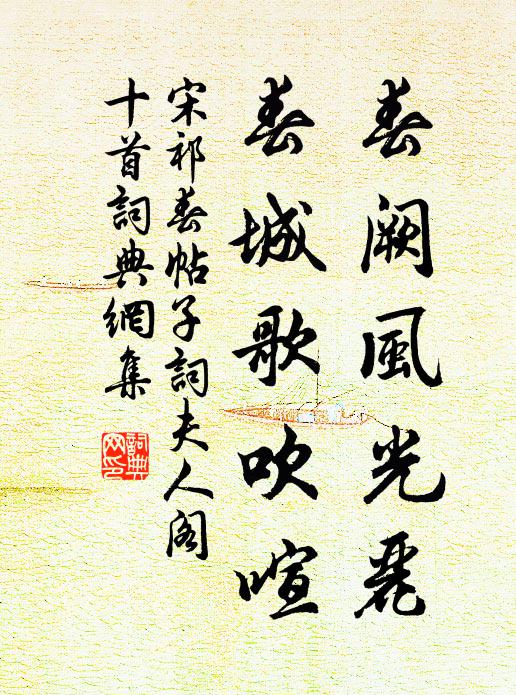 春闕風光麗
春城歌吹喧
宋祁春帖子詞夫人閣
十首詞典網集
詞典网印